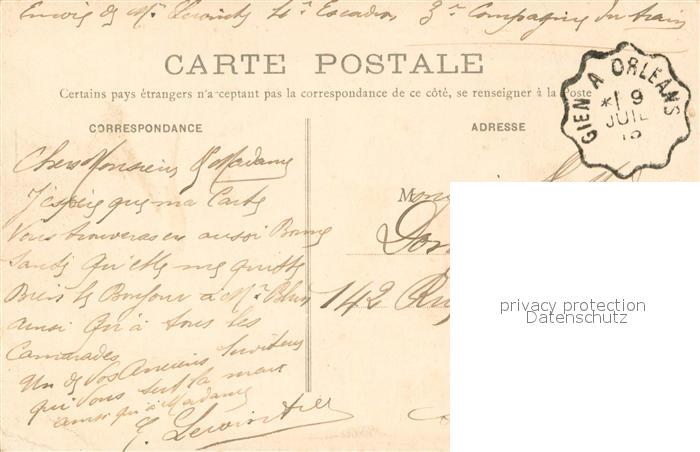 Envoi de Mr Lecointe 4e Escadron 3e Compagnie du train
CARTE POSTALE
Certains pays étrangers n'acceptant pas la correspondance de ce côté, se renseigner à la Poste
GIEN A ORLEANS
* 9
JUIL
15
CORRESPONDANCE
ADRESSE
Chers Monsieur & Madame
J'espère que ma Carte
Vous trouveras en aussi Bonne
Santé qu'elle me quitte
Bien le Bonjour à Mr
ainsi qu'à tous les
Camarades
Un de Vos Anciens Serviteurs
qui Vous sert la main
ainsi qu'à Madame
M
142 Ru
privacy protection
Datenschutz